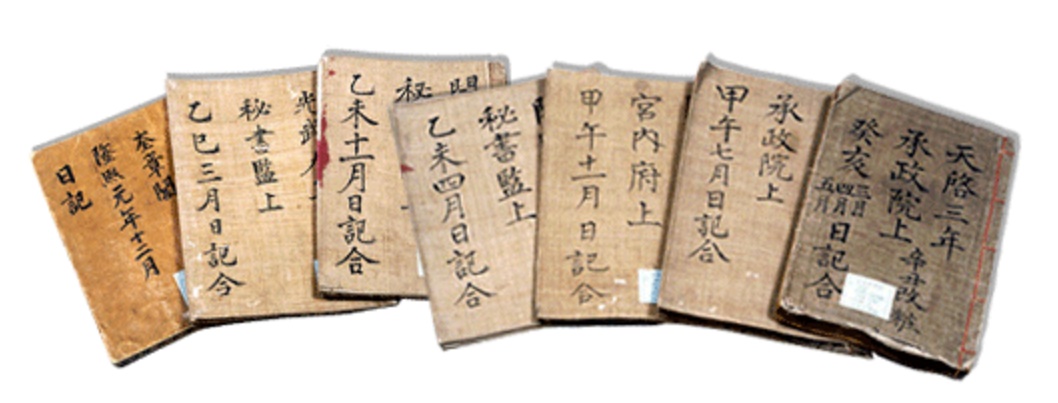 天啓三年
承政院上
改
癸亥三月四月五月日記合
承政院上
甲午七月日記合
宮內府上
甲午十一月日記合
秘書監上
乙未四月日記合
開
秘
乙未十一月日記合
光武
秘書監上
乙巳三月日記合
奎章閣
隆熙元年十二月
日記